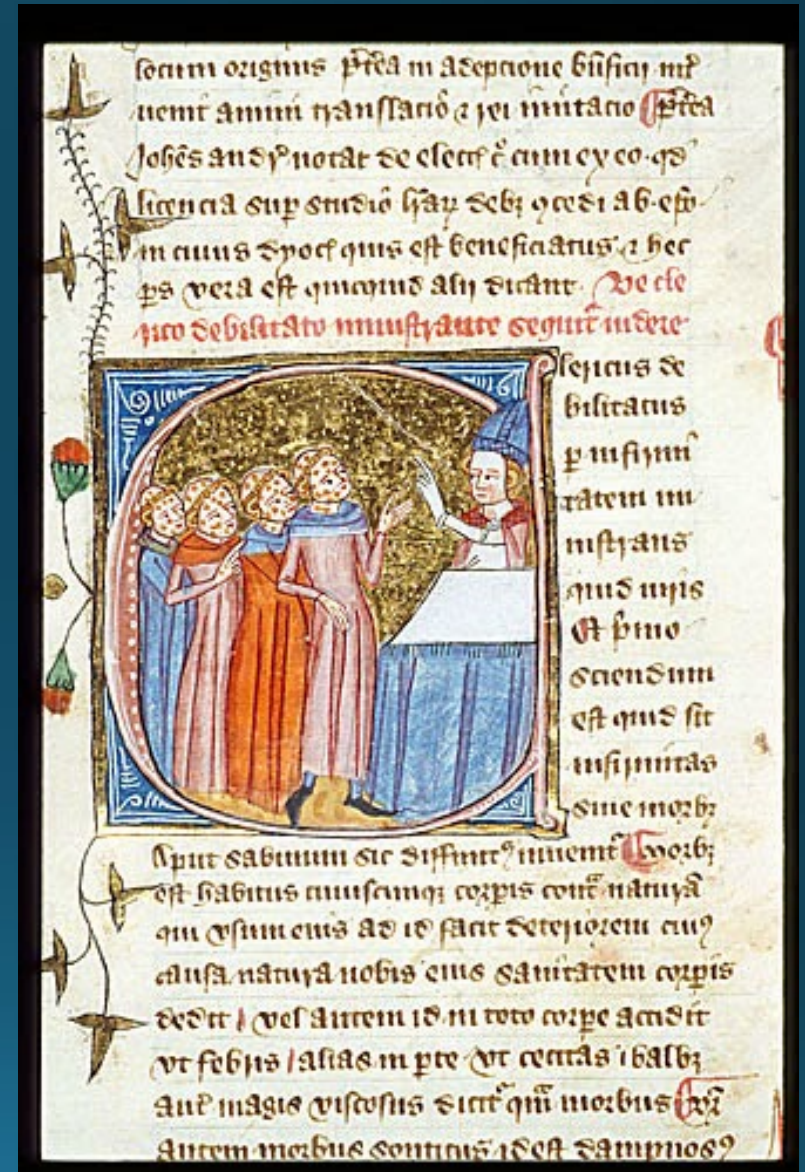 locum originis p̄tea in adepcione bn̄ficij int̉
uenit animi translaciō ⁊ rei mutacio p̄tea
Joh̄es andr̉ notat de elect̉ c̉ cum ex eo · qd̉
licencia sup studiō har̉ debꝫ ꝯcedi ab ep̄o
in cuius dyoc̉ quis est beneficiatus ⁊ hec
ps vera est quicquid alij dicant De cle
rico debilitato ministrante sequit̉ videre
lericus de
bilitatus
p infirmi
tatem mi
nistrans
quid iuris
Et p̄mo
sciendum
est quid sit
infirmitas
siue morbꝫ
Aput sabinum sic diffinit̉ꝰ inuenit̉ Morbꝫ
est habitus cuiuscunqꝫ corpis cont̉ naturā
qui vsum eius ad id facit deteriorem cuiꝰ
causa natura nobis eius sanitatem corpis
dedit vel autem id in toto corpe accidit
vt febris alias in pte vt cecitas
aut̉ magis viscosus dicit̉ qm̄ morbus
autem morbus sonticus id est dampnosꝰ